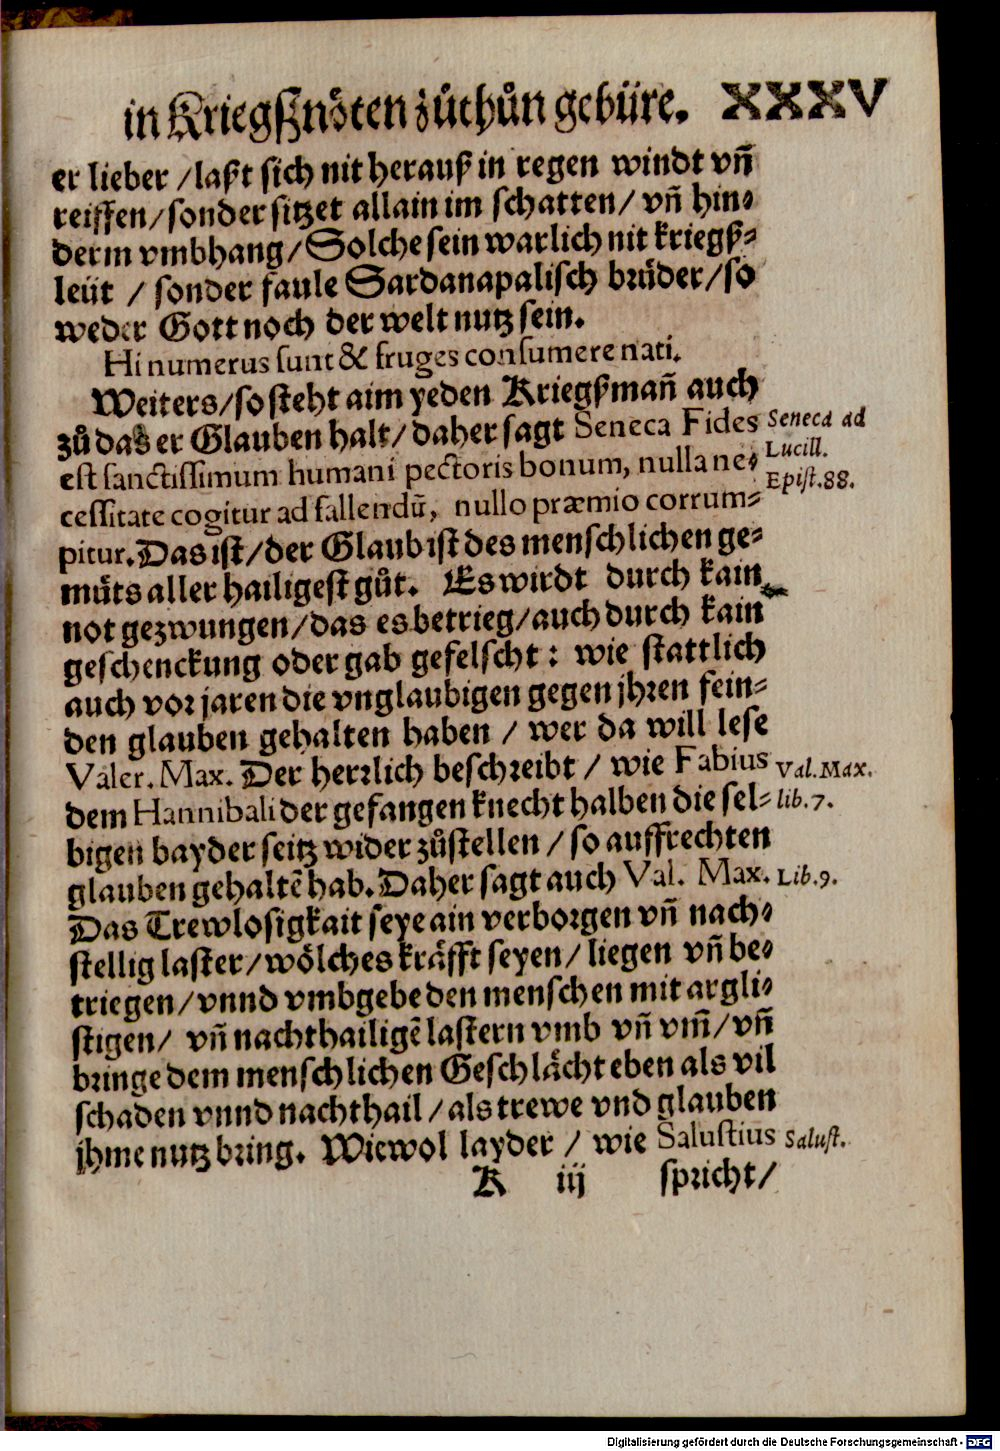 in Kriegßnöten zůthůn gebüre. XXXV
er lieber / laßt sich nit herauß in regen windt vñ
reiffen / sonder sitzet allain im schatten / vñ hin-
derm vmbhang / Solche sein warlich nit kriegß-
leüt / sonder faule Sardanapalisch brüder / so
weder Gott noch der welt nutz sein.
Hi numerus sunt & fruges consumere nati.
Weiters / so steht aim yeden Kriegßmañ auch
zů das er Glauben halt / daher sagt Seneca Fides
Seneca ad
Lucill.
Epist. 88.
est sanctissimum humani pectoris bonum, nulla ne-
cessitate cogitur ad fallendũ, nullo præmio corrum-
pitur. Das ist / der Glaub ist des menschlichen ge-
müts aller hailigest gůt. Es wirdt durch kain
not gezwungen / das es betrieg / auch durch kain
geschenckung oder gab gefelscht : wie stattlich
auch vor jaren die vnglaubigen gegen jhren fein-
den glauben gehalten haben / wer da will lese
Valer. Max. Der herrlich beschreibt / wie Fabius
Val. Max.
lib. 7.
dem Hannibali der gefangen knecht halben die sel-
bigen bayder seitz wider zůstellen / so auffrechten
glauben gehaltẽ hab. Daher sagt auch Val. Max.
Lib. 9.
Das Trewlosigkait seye ain verborgen vñ nach-
stellig laster / wölches kräfft seyen / liegen vñ be-
triegen / vnnd vmbgebe den menschen mit argli-
stigen / vñ nachthailigẽ lastern vmb vñ vm̃ / vñ
bringe dem menschlichen Geschlächt eben als vil
schaden vnnd nachthail / als trewe vnd glauben
jhme nutz bring. Wiewol layder / wie Salustius
Salust.
K iij spricht /
Digitalisierung gefördert durch die Deutsche Forschungsgemeinschaft - DFG